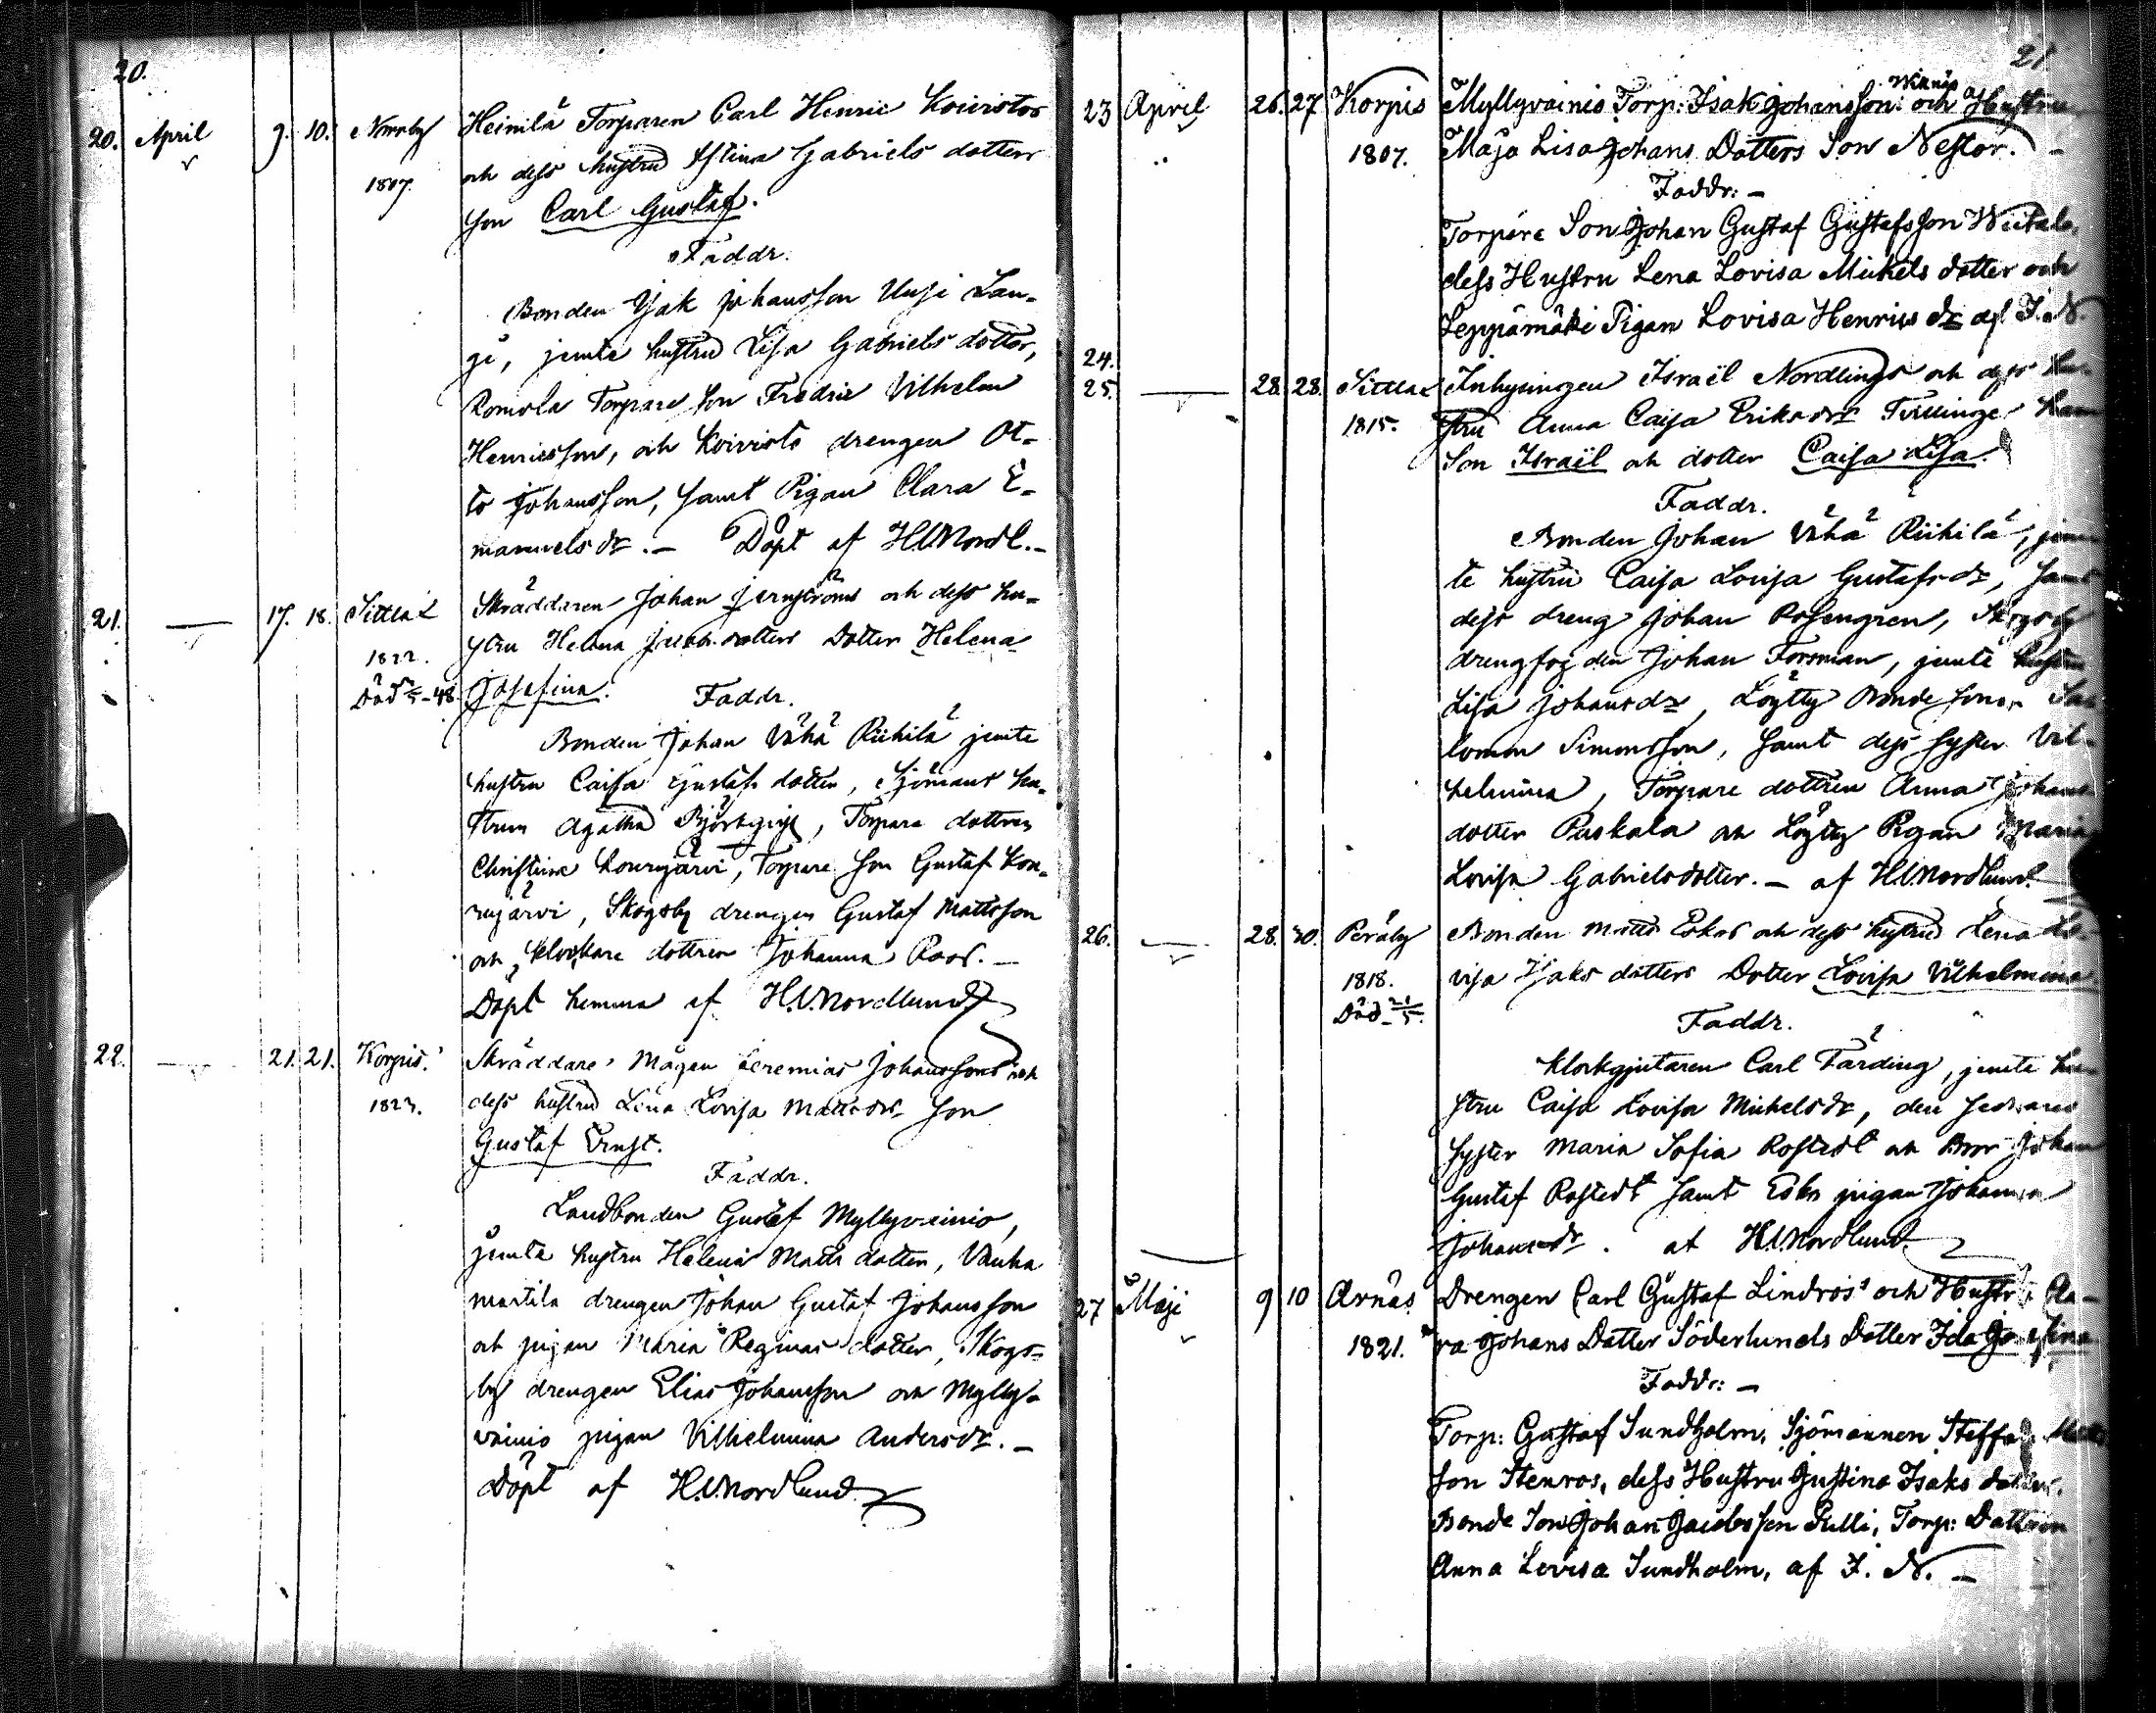 20.
20. April 9. 10. Normby Heinilä Torparen Carl Henric Koivistos
och dess hustru Stina Gabriels dotters
1807.
son Carl Gustaf.
Faddr.
Bonden Isak Johansson Uusi Lan-
gi, jemte hustru Lisa Gabriels dotter,
Romola Torpare son Fredric Vilhelm
Henricsson, och Koivisto drengen Ot-
to Johansson, samt Pigan Clara E-
manuels dr. — Döpt af H.U.Nordl.—
21. — 17. 18. Sittla Skräddaren Johan Jernströms och dess hu-
stru Helena Jacobs dotters Dotter Helena
1822.
Död — 48. Josefina. Faddr.
Bonden Johan Vähä Riihilä jemte
hustru Caisa Gustafs dotter, Sjömans hu-
strun Agatha, Torpare dottren
Christina Kourujärvi, Torpare son Gustaf Kou-
rujärvi, Skogsby drengen Gustaf Mattsson
och klockare dottren Johanna Roos. —
Döpt hemma af H.U.Nordlund
22. — 21. 21. Korpis. Skräddare Mågen Jeremias Johanssons och
1823. dess hustru Lena Lovisa Mattsdrs son
Gustaf Ernst.
Faddr.
Landbonden Gustaf Myllyveinio,
jemte hustru Helena Matts dotter, Vanha
martila drengen Johan Gustaf Johansson
och pigan Maria Reginas dotter, Skogs-
by drengen Elias Johansson och Mylly-
vainio pigan Vilhelmina Andersdr. —
Döpt af H.U.Nordlund
21
23 April 26. 27 Korpis Myllyvainis Torp: Isak Johansson och Hustru
1807. Maja Lisa Johans Dotters Son Nestor. —
Faddr: —
Torpare Son Johan Gustaf Gustafsson Wiitala,
dess Hustru Lena Lovisa Mickels dotter och
Leppämäki Pigan Lovisa Henrics dr af I. N.
24.
25. — 28. 28. Sittla Inhysingen Israël Nordlings och dess hu-
1815. stru Anna Caisa Eriks drs Tvillinge barn
Son Israël och dotter Caisa Lisa.
Faddr.
Bonden Johan Vähä Riihilä, jem
te hustru Caisa Lovisa Gustafs dr, samt
dess dreng Johan Rosengren, Skogsby
drengfogden Johan Forsman, jemte hustru
Lisa Johans dr, Löytty Bonde sonen Sa
lomon Simonsson, samt dess syster Vil-
helmina, Torpare dottren Anna Johans
dotter Paskala och Löytty Pigan Maria
Lovisa Gabrielsdotter. — af H.U.Nordlund
26. — 28. 30. Peräby Bonden Matts Eskos och dess hustru Lena Lo-
1818. visa Isaks dotters Dotter Lovisa Vilhelmina
Död 21/5.
Faddr.
Klockgjutaren Carl Färding, jemte hu-
stru Caisa Lovisa Michelsdr, den sednares
syster Maria Sofia Rostedt och Bror Johan
Gustaf Rostedt samt Esko pigan Johanna
Johansdr. af H.U.Nordlund
27 Maji 9 10 Arnäs Drengen Carl Gustaf Lindros' och Hustru Cla-
1821. ra Johans Dotter Söderlunds Dotter Ida Josefina
Faddr: —
Torp: Gustaf Sundholm, Sjömannen Steffan Matts
son Stenros, dess Hustru Gustina Isaks dotter,
Bonde Son Johan Jacobsson Pulli, Torp: Dottren
Anna Lovisa Sundholm, af I. N. —